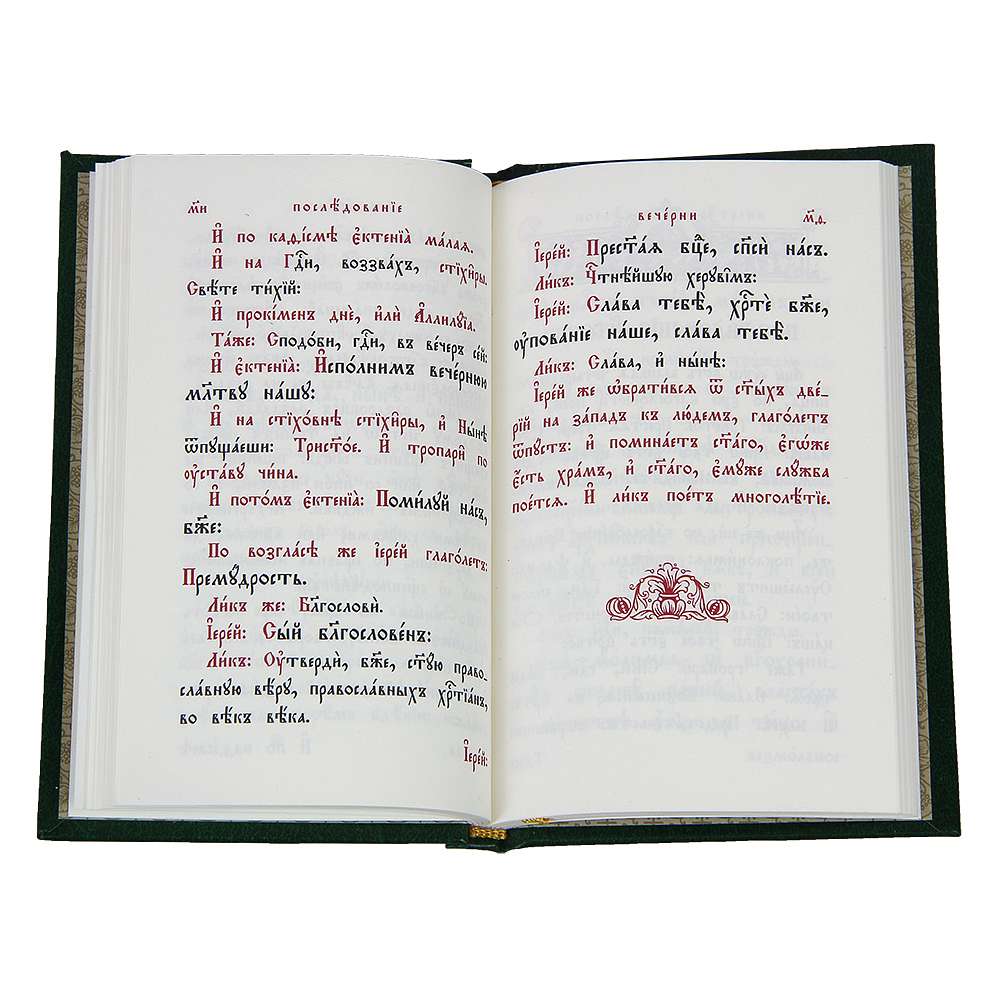 м҃и ПОСЛѢ́ДОВАНЇЕ
И҆ по каѳі́смѣ є҆ктенїа̀ ма́лая.
И҆ на Гдⷭ҇и, воззва́хъ, стїхи̑ры.
Свѣ́те ти́хїй:
И҆ прокі́менъ днѐ, и҆лѝ А҆ллилꙋ́їа.
Та́же: Сподо́би, гдⷭ҇и, въ ве́черъ се́й:
И҆ є҆ктенїа̀: И҆спо́лнимъ вече́рнюю
мл҃твꙋ на́шꙋ:
И҆ на стїхо́внѣ стїхи̑ры, и҆ Ны́нѣ
ѿпꙋща́еши: Трист҃о́е. И҆ тропари̑ по
ᲂу҆ста́вꙋ чи́на.
И҆ пото́мъ є҆ктенїа̀: Поми́лꙋй на́съ,
бж҃е:
По во́згласѣ же і҆ере́й глаго́летъ:
Премꙋ́дрость.
Ли́къ же: Бл҃гословѝ.
І҆ере́й: Сы́й бл҃гослове́нъ:
Ли́къ: Оу҆твердѝ, бж҃е, ст҃ꙋ́ю право-
сла́внꙋю вѣ́рꙋ, правосла́вныхъ хрⷭ҇тїа́нъ,
во вѣ́къ вѣ́ка.
І҆ере́й:
ВЕЧЕ́РНИ м҃ѳ.
І҆ере́й: Прест҃а́я бц҃е, сп҃сѝ на́съ.
Ли́къ: Чⷭ҇тнѣ́йшꙋю херꙋві̑мъ:
І҆ере́й: Сла́ва тебѣ̀, хрⷭ҇тѐ бж҃е,
ᲂу҆пова́нїе на́ше, сла́ва тебѣ̀.
Ли́къ: Сла́ва, и҆ ны́нѣ:
І҆ере́й же ѡ҆брати́вся ѿ ст҃ы́хъ две́-
рїй на за́падъ къ лю́демъ, глаго́летъ
ѿпꙋ́стъ: и҆ помина́етъ ст҃а́го, є҆гѡ́же
є҆́сть хра́мъ, и҆ ст҃а́го, є҆мꙋ́же слꙋ́жба
пое́тся. И҆ ли́къ пое́тъ многолѣ́тїе.